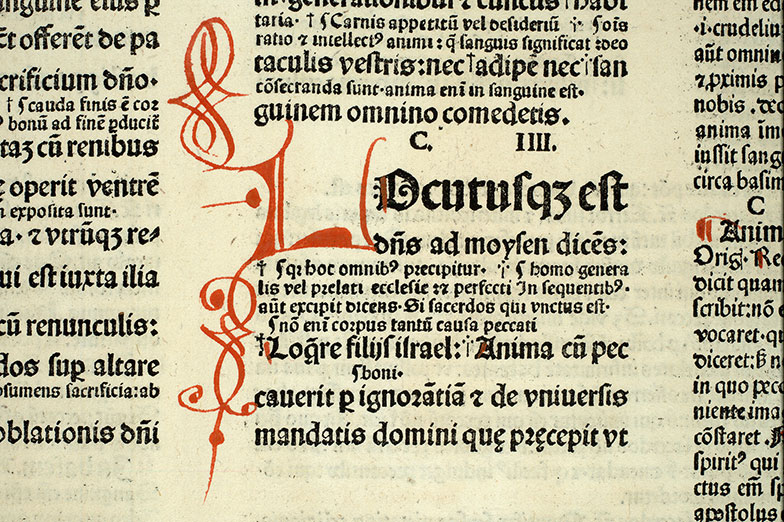 anguine eius p̄
Et offerēt de pa
crificium dño·
† ꝯ cauda finis ē cor
bonū ad finē ꝑducit
taꝫ cū renibus
operit ventrē
expoſita ſunt·
a· ⁊ vtrūqꝫ re⸗
ui eſt iuxta ilia
cū renunculis:
dos ſuꝑ altare
oſumens ſacrificia: ab
oblationis dñi
in generationibus ⁊ cunctis habi
taria· † ꝯ Carnis appetitū vel deſideriū
ratio ⁊ intellectꝰ animi: ꝙ ſanguis ſignificat :deo
taculis veſtris: nec † adipē nec † ſan
cōſecranda ſunt· anima enī in ſanguine eſt·
guinem omnino comedetis.
C. IIII.
LOcutuſqꝫ eſt
dñs ad moyſen dicēs:
† ꝯ Qꝛ hoc omnibꝰ precipitur· † ꝯ homo genera
lis vel prelati eccleſie ⁊ perfecti In ſequentibꝰ·
aūt excipit dicens· Si ſacerdos qui vnctus eſt·
ꝯ nō enī corpus tantū cauſa peccati
† Loq̄re filijs iſrael: † Anima cū pec
ꝯ honi·
cauerit ꝑ ignorātiā ⁊ de vniuerſis
mandatis domini quę pręcepit vt
nem em
·i· crudeliu
aūt omnin
⁊ ꝓximis p
nobis
anima im
iuſſit ſang
circa baſim
C
Anim
Origi· Re
dicit quam
ſcribit: nō e
vocaret· qu
diceret: ſꝫ n
in quo pecc
niente ima
cōſtaret·
ſpiritꝰ qui
ctus em̄ ſp
apoſtolus